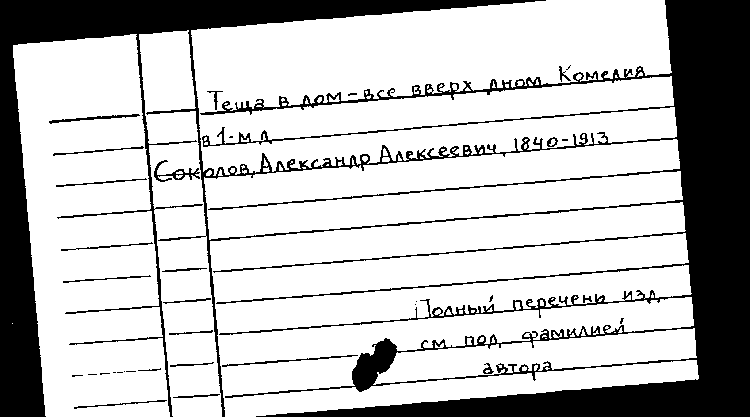 Теща в дом-все вверх дном. Комедия
в 1-м д
Соколов, Александр Алексеевич, 1840-1913
Полный перечень изд.
см. под фамилией
автора